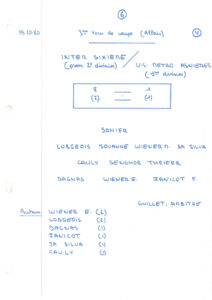 6
19.10.80 3ème Tour de coupe (Allier) 4
INTER SIXIEME
(prom. 2e division) / U.S. METRO ASNIERES
(1ère division)
8 — 1
(2) — (1)
SOHIER
LOBGEOIS SOUANNE WIENER D. DA SILVA
CAULY SENGHOR THIERRR
DAGNAS WIENER E. JANICOT F.
GUILLET, ARBITRE
Buteurs WIENER E. (2)
LOBGEOIS (2)
DAGNAS (1)
JANICOT (1)
DA SILVA (1)
CAULY (1)